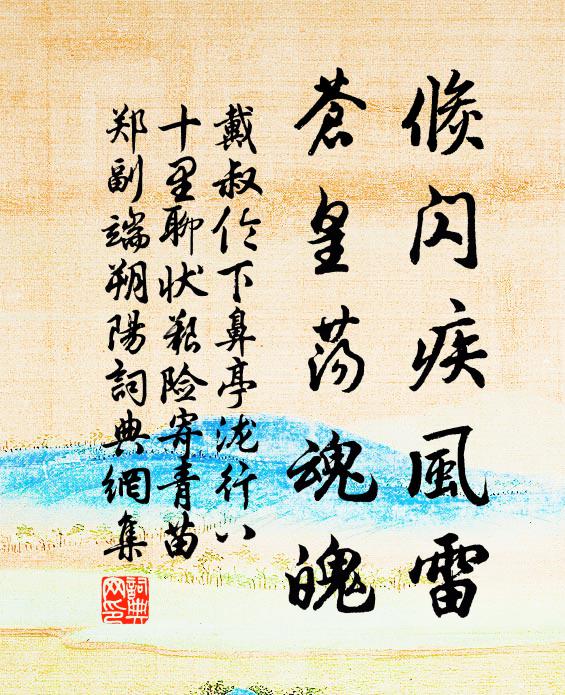 倏闪疾風雷
蒼皇荡魂魄
戴叔伦下鼻亭泷行八
十里聊状艰险寄青苗
郑副端朔陽詞典網集